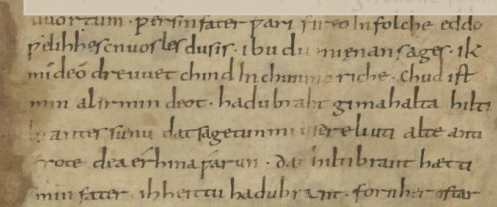 uuortum · ƿer sin fater ƿari fireo In folche eddo
ƿelihhes cnuosles du sis · ibu du mi enan sages · ik
mi deo dre uuet chind In chunincriche · chud ist
min al irmin deot · hadubraht gimahalta hilti
brantes sunu dat sagetun mi usere liuti alte anti
frote dea erhina ƿarun · dat hiltibrant hætti
min fater · ih heittu hadubrant · forn her ostar